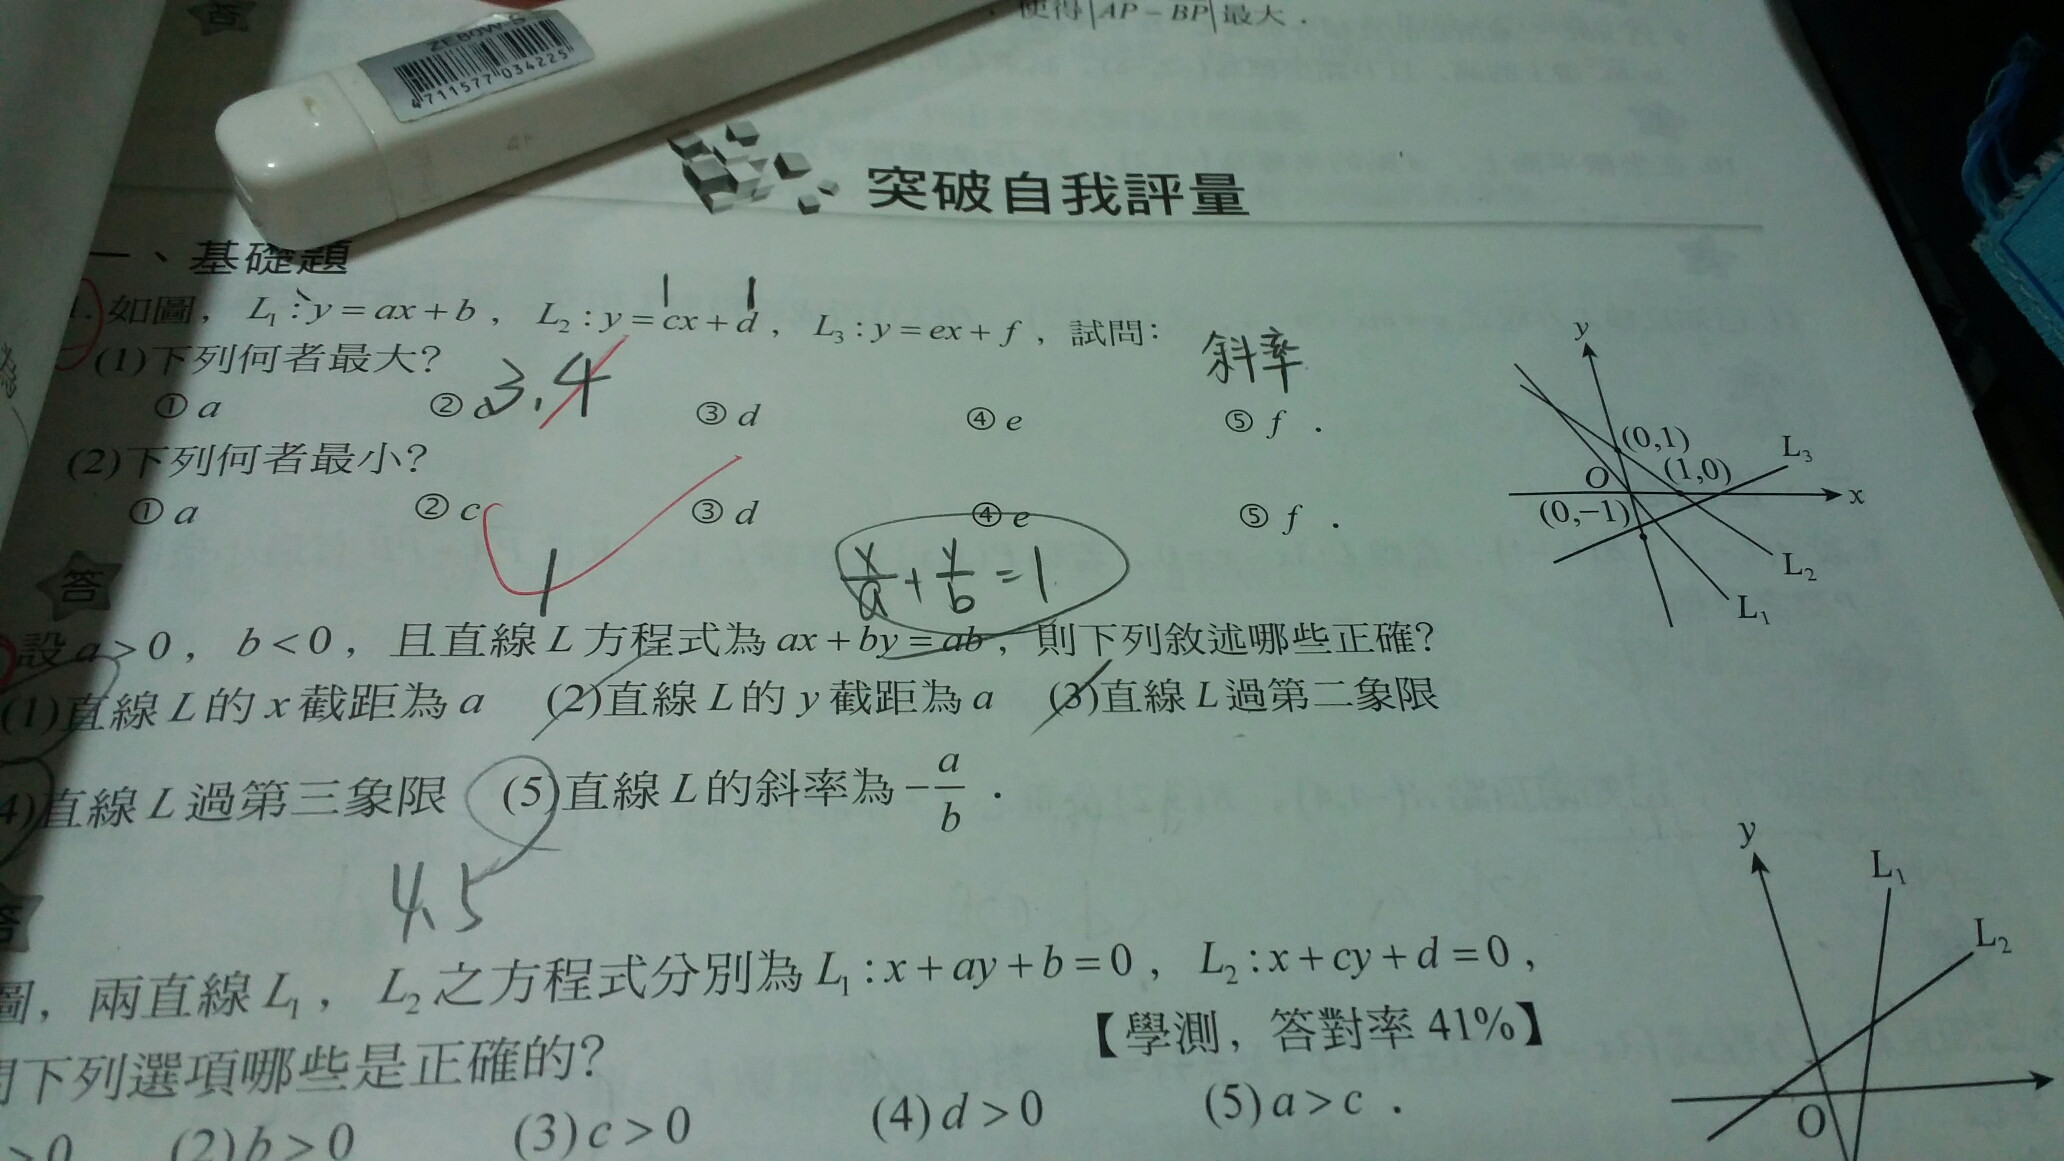 使得|AP－BP|最大．
ZE80W-S
4711577034225
突破自我評量
一、基礎題
1. 如圖，L₁：y＝ax＋b，L₂：y＝cx＋d，L₃：y＝ex＋f，試問：
1 1
斜率
(1)下列何者最大？
3.4
① a ② c ③ d ④ e ⑤ f ．
(2)下列何者最小？
① a ② c ③ d ④ e ⑤ f ．
答
1
x/a + y/b = 1
y
(0,1)
(1,0)
L₃
O
x
(0,−1)
L₂
L₁
設 a＞0，b＜0，且直線 L 方程式為 ax＋by＝ab，則下列敘述哪些正確？
(1)直線 L 的 x 截距為 a (2)直線 L 的 y 截距為 a (3)直線 L 過第二象限
4)直線 L 過第三象限 (5)直線 L 的斜率為 −a/b ．
答
4.5
圖，兩直線 L₁，L₂ 之方程式分別為 L₁：x＋ay＋b＝0，L₂：x＋cy＋d＝0，
問下列選項哪些是正確的？ 【學測，答對率 41%】
＞0 (2) b＞0 (3) c＞0 (4) d＞0 (5) a＞c ．
y
L₁
L₂
O